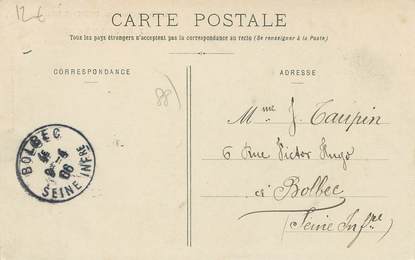 12 €
CARTE POSTALE
Tous les pays étrangers n'acceptent pas la correspondance au recto (Se renseigner à la Poste)
CORRESPONDANCE
ADRESSE
88)
Mme J. Taupin
6 Rue Victor Hugo
à Bolbec
(Seine Infre)
BOLBEC
06
SEINE INFRE